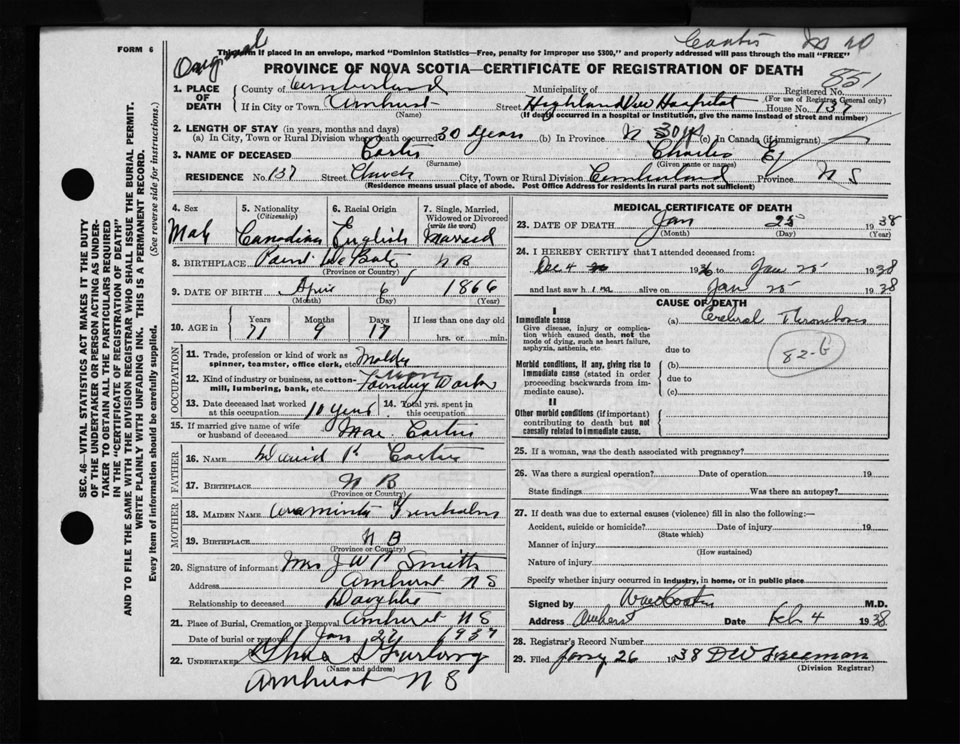 FORM 6
Original
This form if placed in an envelope, marked "Dominion Statistics—Free, penalty for improper use $300," and properly addressed will pass through the mail "FREE"
PROVINCE OF NOVA SCOTIA—CERTIFICATE OF REGISTRATION OF DEATH
851
1. PLACE OF DEATH
County of Cumberland Municipality of Registered No.
(For use of Registrar General only)
If in City or Town Amherst Street Highland View Hospital House No. 137
(Name) (If death occurred in a hospital or institution, give the name instead of street and number)
2. LENGTH OF STAY (in years, months and days)
(a) In City, Town or Rural Division where death occurred 30 years (b) In Province (c) In Canada (if immigrant)
3. NAME OF DECEASED Charles E
(Surname) (Given name or names)
RESIDENCE No. 137 Street Church City, Town or Rural Division Cumberland Province N S
(Residence means usual place of abode. Post Office Address for residents in rural parts not sufficient)
4. Sex
Male
5. Nationality
(Citizenship)
Canadian
6. Racial Origin
English
7. Single, Married, Widowed or Divorced
(write the word)
Married
8. BIRTHPLACE N B
(Province or Country)
9. DATE OF BIRTH April 6 1866
(Month) (Day) (Year)
10. AGE in
Years Months Days If less than one day old
71 9 17 hrs. or min.
OCCUPATION
11. Trade, profession or kind of work as spinner, teamster, office clerk, etc.
12. Kind of industry or business, as cotton-mill, lumbering, bank, etc. Foundry Work
13. Date deceased last worked at this occupation 10 years 14. Total yrs. spent in this occupation
15. If married give name of wife or husband of deceased
FATHER
16. Name David
17. BIRTHPLACE N B
(Province or Country)
MOTHER
18. MAIDEN NAME Araminta Trenholm
19. BIRTHPLACE N B
(Province or Country)
20. Signature of informant Mrs J W Smith
Address Amherst N S
Relationship to deceased Daughter
21. Place of Burial, Cremation or Removal Amherst N S
Date of burial or removal Jan 27 1937
22. UNDERTAKER Furlong
(Name and address)
Amherst N S
MEDICAL CERTIFICATE OF DEATH
23. DATE OF DEATH Jan 25 1938
(Month) (Day) (Year)
24. I HEREBY CERTIFY that I attended deceased from:
Dec 4 1936 to Jan 25 1938
and last saw him alive on Jan 25 1938
CAUSE OF DEATH
I
Immediate cause (a) Cerebral Thrombosis
Give disease, injury or complication which caused death, not the mode of dying, such as heart failure, asphyxia, asthenia, etc.
due to
82-b
Morbid conditions, if any, giving rise to immediate cause (stated in order proceeding backwards from immediate cause).
(b)
due to
(c)
II
Other morbid conditions (if important) contributing to death but not causally related to immediate cause.
25. If a woman, was the death associated with pregnancy?
26. Was there a surgical operation? Date of operation 19
State findings Was there an autopsy?
27. If death was due to external causes (violence) fill in also the following:—
Accident, suicide or homicide? Date of injury 19
(State which)
Manner of injury
(How sustained)
Nature of injury
Specify whether injury occurred in industry, in home, or in public place
Signed by M.D.
Address Amherst Date Feb 4 1938
28. Registrar's Record Number
29. Filed Jany 26 1938 D W Freeman
(Division Registrar)
SEC. 46—VITAL STATISTICS ACT MAKES IT THE DUTY
OF THE UNDERTAKER OR PERSON ACTING AS UNDER-
TAKER TO OBTAIN ALL THE PARTICULARS REQUIRED
IN THE "CERTIFICATE OF REGISTRATION OF DEATH"
AND TO FILE THE SAME WITH THE DIVISION REGISTRAR WHO SHALL ISSUE THE BURIAL PERMIT.
WRITE PLAINLY WITH UNFADING INK. THIS IS A PERMANENT RECORD.
Every item of information should be carefully supplied. (See reverse side for instructions.)